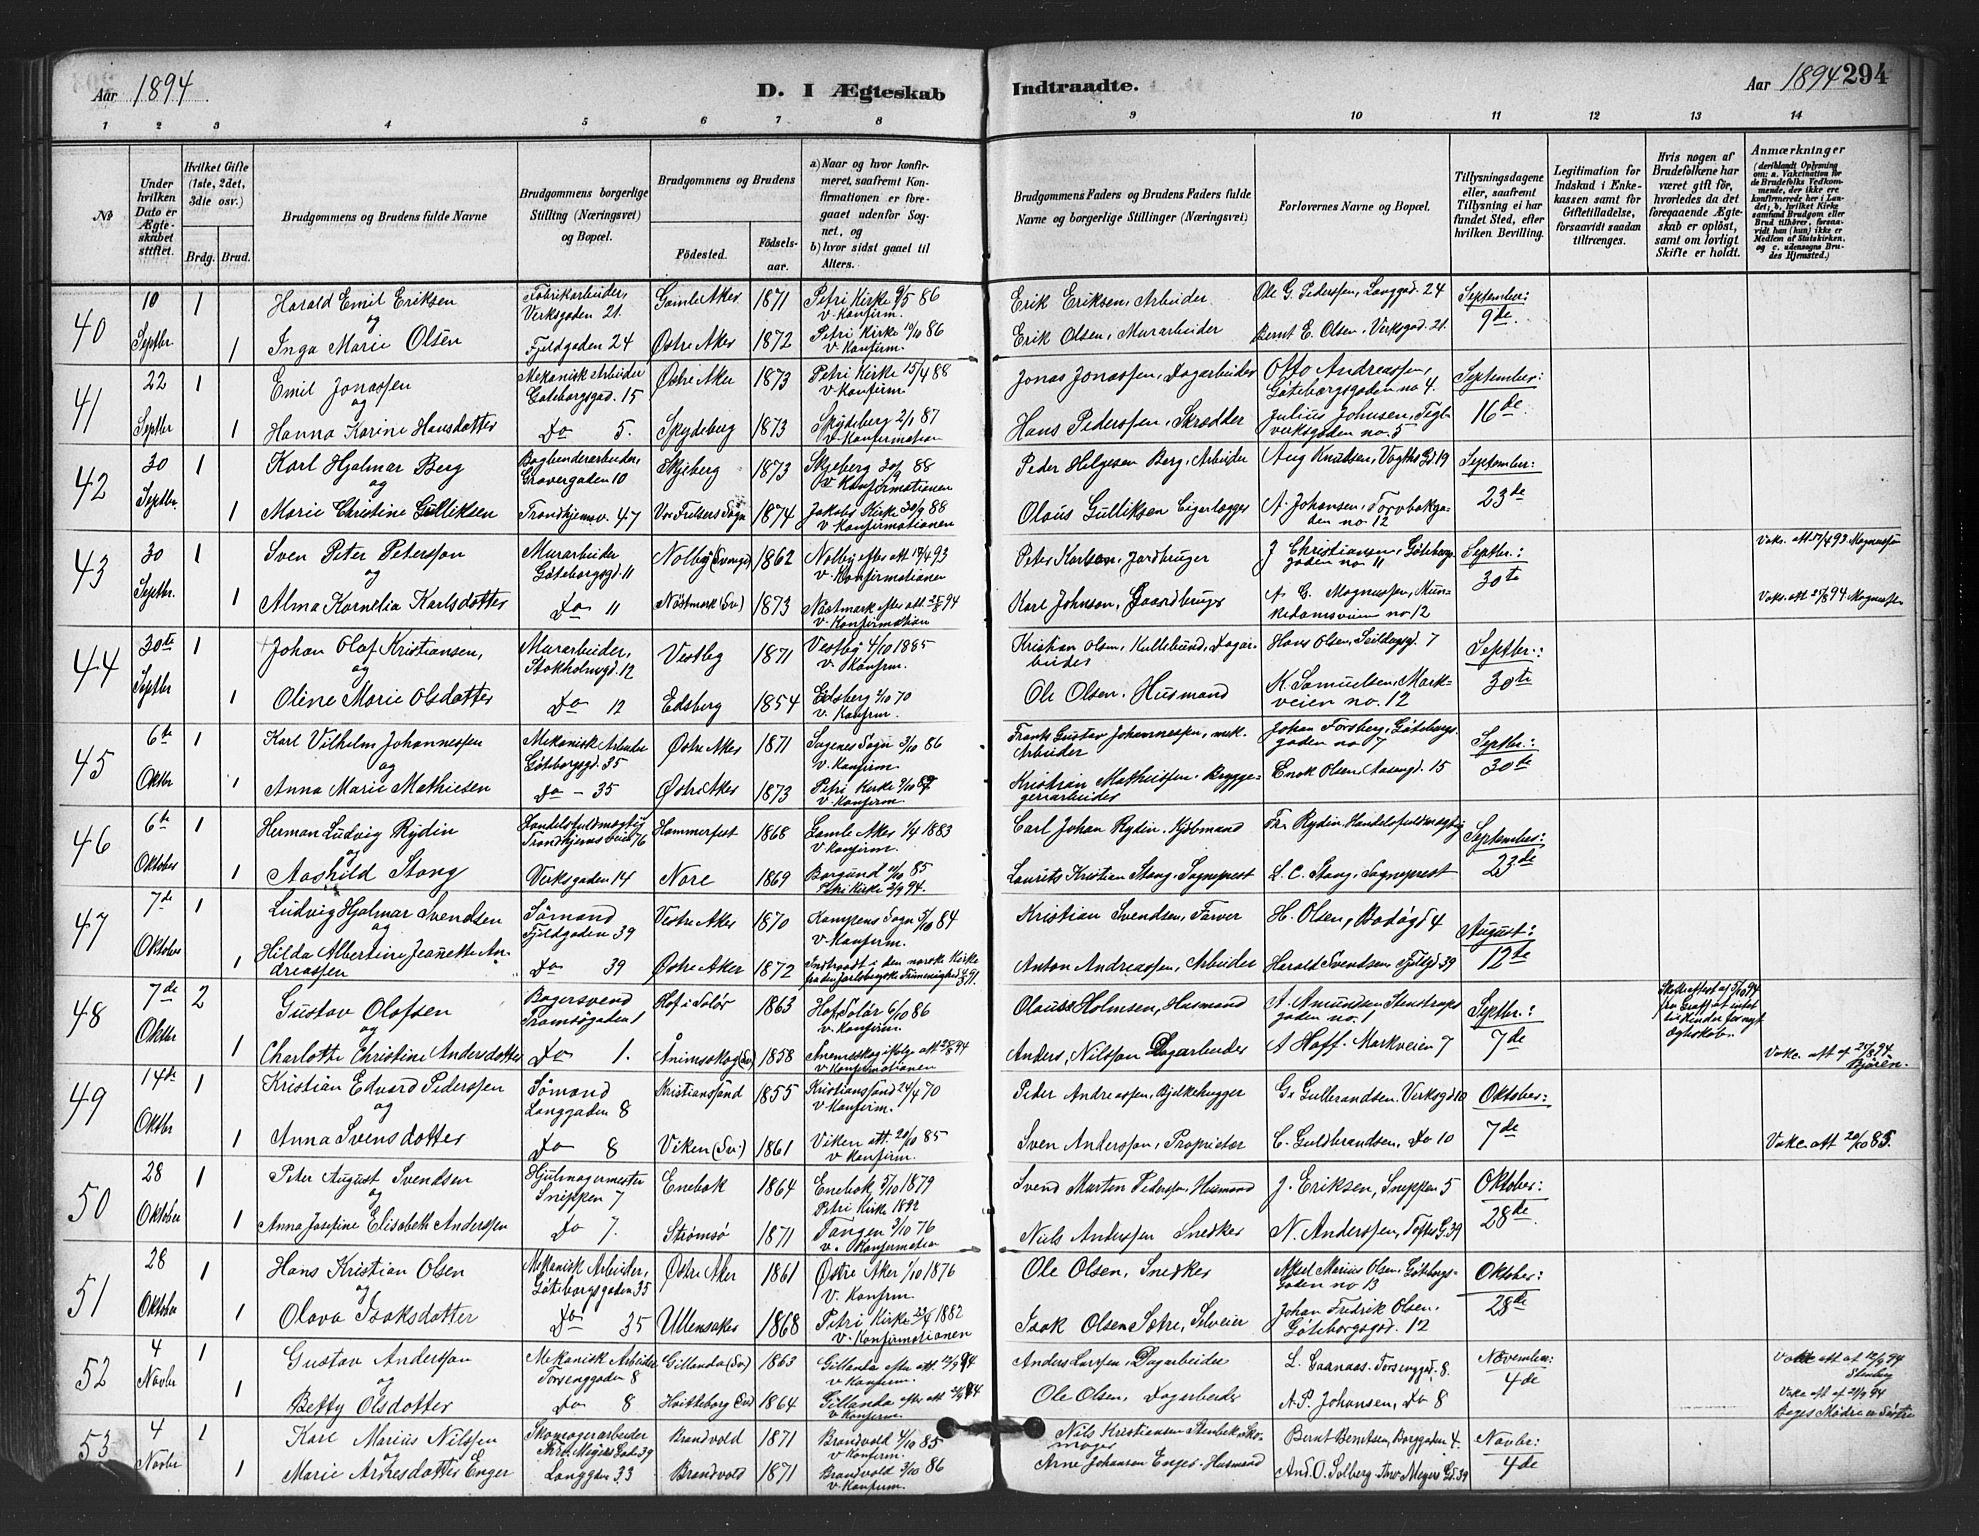 Aar 1894.
D. I Ægteskab
Indtraadte.
Aar 1894 294
1 2 3 4 5 6 7 8 9 10 11 12 13 14
No
Under hvilken Dato er Ægteskabet stiftet.
Hvilket Gifte (1ste, 2det, 3die osv.)
Brdg. Brud.
Brudgommens og Brudens fulde Navne
Brudgommens borgerlige Stilling (Næringsvei) og Bopæl.
Brudgommens og Brudens
Fødested.
Fødselsaar.
a) Naar og hvor konfirmeret, saafremt Konfirmationen er foregaaet udenfor Sognet, og
b) hvor sidst gaaet til Alters.
Brudgommens Faders og Brudens Faders fulde Navne og borgerlige Stillinger (Næringsvei)
Forlovernes Navne og Bopæl.
Tillysningsdagene eller, saafremt Tillysning ei har fundet Sted, efter hvilken Bevilling.
Legitimation for Indskud i Enkekassen samt for Giftetilladelse, forsaavidt saadan tiltrænges.
Hvis nogen af Brudefolkene har været gift før, hvorledes da det foregaaende Ægteskab er opløst, samt om lovligt Skifte er holdt.
Anmærkninger
40 10 Septbr 1 Harald Emil Eriksen Fabrikarbeider, Verksgaden 21. Gamle Aker 1871 Petri Kirke 9/5 86 v. Konfirm. Erik Eriksen, Arbeider Ole G. Pedersen, Langgd. 24 September: 9de
og
1 Inga Marie Olsen Fjeldgaden 24 Østre Aker 1872 Petri Kirke 10/10 86 v. Konfirm. Erik Olsen, Murarbeider Bernt E. Olsen, Verksgad. 21.
41 22 Septbr 1 Emil Jonassen Mekanisk Arbeider Gøteborgsgd. 15 Østre Aker 1873 Petri Kirke 15/4 88 v Konfirm Jonas Jonassen, Dagarbeider Otto Andreassen, Göteborgsgaden no 4. September: 16de
og
1 Hanna Karine Hansdatter Do 5. Spydeberg 1873 Spydeberg 2/1 87 v Konfirmation Hans Pedersen, Skrædder Julius Johnsen, Teglverksgaden no. 5
42 30 Septbr. 1 Karl Hjalmar Berg Bogbinderarbeider, Gravergaden 10 Skjeberg 1873 Skjeberg 30/9 88 v Konfirmationen Peder Helgesen Berg, Arbeider Aug Knutsen, Vogts Gd. 19 September: 23de
og
1 Marie Christine Gulliksen Trondhjemsv. 47 Vor Frelsers Sogn 1874 Jakobs Kirke 30/9 88 v Konfirmationen Olaus Gulliksen Cigarlægger A. Johansen, Torvbakgaden no 12
43 30 Septbr. 1 Sven Peter Petersson Murarbeider Göteborgsgd. 11 Nolby (Sverige) 1862 Nolby efter att 17/4 93 v. Konfirmationen Peter Karlson, Jordbruger J Christiansen, Göteborgsgaden no 11 Septbr.: 30te Vakc. att 17/4 93 Magnusson
og
1 Alma Kornelia Karlsdatter Do 11 Nöstmark (Sv.) 1873 v. Konfirmation Karl Johnson, Gaardbruger A G. Magnussen, Munkedamsveien no 12
44 30te Septbr 1 Johan Olaf Kristiansen, Murarbeider, Stokholmsgd. 12 Vestby 1871 Vestby 4/10 1885 v. Konfirm. Kristian Olsen, Kullebund, Dagarbeider Hans Olsen, Seildugsgd. 7 Septbr.: 30te
og
1 Oline Marie Olsdatter Do 12 Edsberg 1854 Edsberg 2/10 70 v. Konfrm. Ole Olsen, Husmand K. Samuelsen, Markveien no. 12
45 6te Oktbr 1 Karl Vilhelm Johannessen Mekanisk Arbeider Göteborgsgd. 35 Østre Aker 1871 Sagenes Sogn 3/10 86 v. Konfirm. Frants Gustav Johannessen, mek. Arbeider Johan Forsberg, Göteborgsgaden no 7 Septbr.: 30te
og
1 Anna Marie Mathiesen Do - 35 Østre Aker 1873 Petri Kirke v. Konfirm. Kristian Mathiesen, Bryggeriarbeider Enok Olsen, Aasengd. 15
46 6te Oktober 1 Herman Ludvig Rydin Handelsfuldmægtig Trondhjems Vei 76 Hammerfest 1868 Gamle Aker 1/4 1883 v Konfirm. Carl Johan Rydin, Kjöbmand Th. Rydin, Handelsfuldmægtig September: 23de
og
1 Aashild Stang Verksgaden 14 Nore 1869 Borgund 4/10 85 Petri Kirke 2/9 94. Laurits Kristian Stang, Sogneprest L. C. Stang, Sogneprest
47 7de Oktober 1 Ludvig Hjalmar Svendsen Sömand Fjeldgaden 39 Vestre Aker 1870 Kampens Sogn 5/10 84 v. Konfirm. Kristian Svendsen, Farver H. Olsen, Bodøgd 4 August: 12te
og
1 Hilda Albertine Jeanette Andreassen Do 39 Østre Aker 1872 Indtraadt i den norske Kirke Anton Andreassen, Arbeider Harald Svendsen, Fjeldgd 39
48 7de Oktbr 2 Gustav Olafsen Bagersvend Tromsögaden 1 Hof i Solör 1863 Hof Solör 6/10 86 v. Konfirm. Olaus Holmsen, Husmand A. Amundsen Stenstrupsgaden no. 1 Septbr.: 7de
og
1 Charlotte Christine Andersdatter Do 1. Ånimskog (Sv) 1858 v Konfirmationen Anders Nilsson Dagarbeider A Hoff. Markveien 7 Vakc. att af 25/8 94 Björén.
49 14de Oktbr 1 Kristian Edvard Pedersen Sömand Langgaden 8 Kristianssand 1855 Kristianssand 24/4 70 v Konfirm. Peder Andreassen, Bjelkehugger G. Gulbrandsen, Verksgd 10 Oktober: 7de
og
1 Anna Svensdotter Do 8 Viken (Sv.) 1861 Viken att. 20/10 85 v Konfirm. Sven Andersson, Proprietær C. Guldbrandsen, Do 10 Vakc. att 20/10 85.
50 28 Oktober 1 Peter August Svendsen Hjulmagermester Snippen 7 Enebak 1864 Enebak, 5/10 1879 Petri Kirke 1892 Svend Martin Pedersen, Husmand J. Eriksen, Snippen 5 Oktober: 28de
og
1 Anna Josefine Elisabeth Anderssen Do 7. Strømsø 1871 Tangen v. Konfirmation Niels Anderssen Snedker N. Anderssen, Toftes G. 39
51 28 Oktober 1 Hans Kristian Olsen Mekanisk Arbeider, Göteborgsgaden 35 Østre Aker 1861 Østre Aker 1/10 1876 v. Konfrm. Ole Olsen, Snedker Aksel Marius Olsen, Göteborgsgaden no 13 Oktober: 28de
og
1 Olava Isaksdatter Do 35 Ullensaker 1868 Petri Kirke 1882 v. Konfirmationen Isak Olsen Sætre, Selveier Johan Fredrik Olsen, Göteborgsgd. 12
52 4 Novbr 1 Gustav Andersson Mekanisk Arbeider Torsenggaden 8 Gillanda (Sv.) 1863 v. Konfirm. Anders Larsson, Dagarbeider L. Torsenggd. 8. November: 4de
og
1 Betty Olsdotter Do 8 1864 v. Konfirm. Ole Olsen, Dagarbeider A. P. Johansen, Do 8
53 4 Novbr 1 Karl Marius Nilsen Skomagerarbeider Thv. Meyers Gade 39 Brandvold 1871 Brandvold 4/10 85 v Konfirm. Nils Kristiansen Stenbek, Skomager Bernt Berntsen, Borggaden 4. Novbr: 4de
og
1 Marie Arnesdatter Enger Langgden 33 Brandvold 1871 Brandvold 3/10 86 v. Konfirm. Arne Johansen Enger, Husmand And. O. Solberg, Thv. Meyers Gd. 39